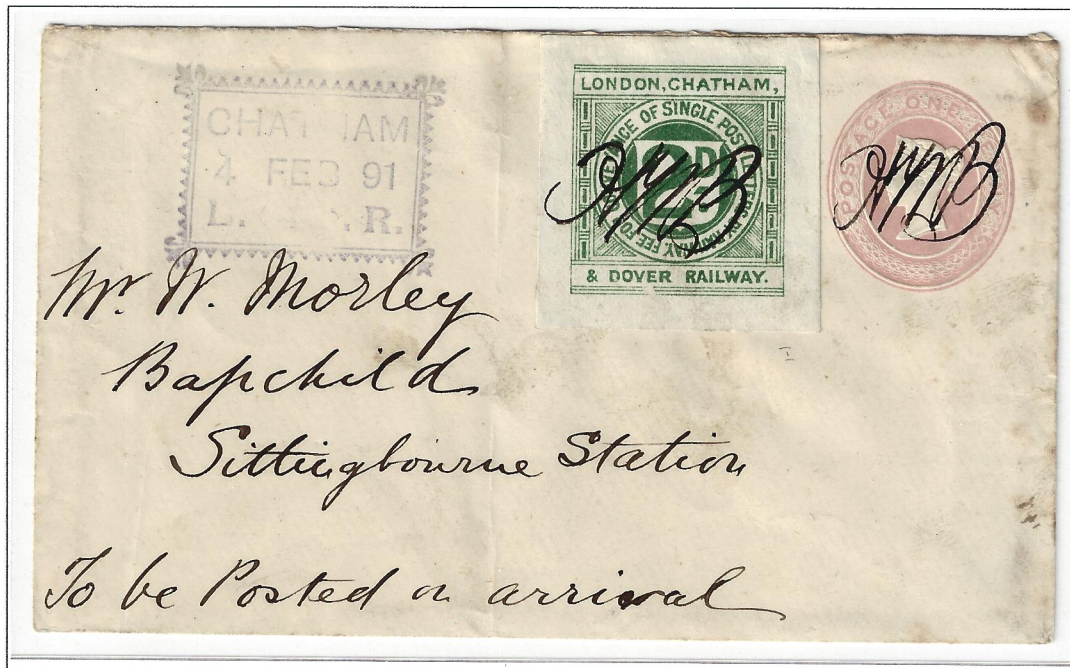 CHATHAM
4 FEB 91
L. .R.
LONDON, CHATHAM,
OF SINGLE POST
FEE FO
2D
& DOVER RAILWAY.
POSTAGE ONE
Mr. W. Morley
Bapchild
Sittingbourne Station
To be Posted on arrival